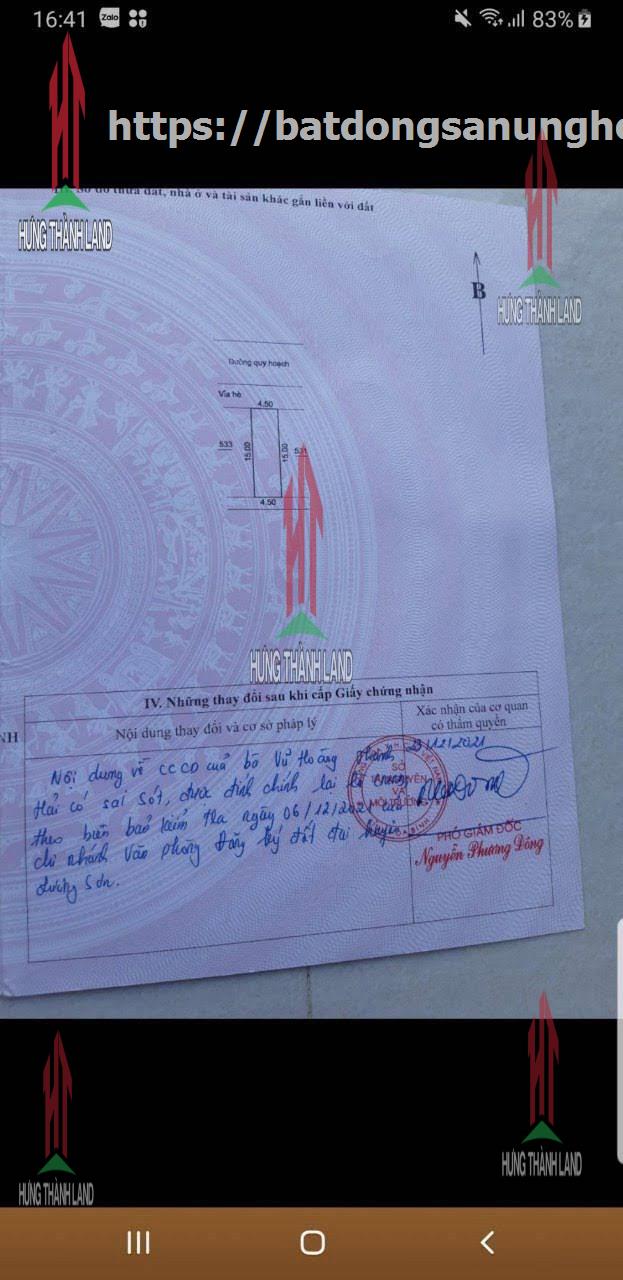 16:41
Zalo
83%
https://batdongsanungho
III. Sơ đồ thửa đất, nhà ở và tài sản khác gắn liền với đất
HƯNG THÀNH LAND
HƯNG THÀNH LAND
B
Đường quy hoạch
Vỉa hè
4.50
533
15.00
15.00
531
4.50
HƯNG THÀNH LAND
IV. Những thay đổi sau khi cấp Giấy chứng nhận
NH
Nội dung thay đổi và cơ sở pháp lý
Xác nhận của cơ quan
có thẩm quyền
Nội dung về CCCD của bà Vũ Hoàng Thanh
Hải có sai sót, được đính chính lại
theo biên bản kiểm tra ngày 06/12/2021 của
chi nhánh Văn phòng Đăng ký đất đai huyện
Lương Sơn.
23/12/2021
SỞ
TÀI NGUYÊN
VÀ
MÔI TRƯỜNG
PHÓ GIÁM ĐỐC
Nguyễn Phương Đông
HƯNG THÀNH LAND
HƯNG THÀNH LAND